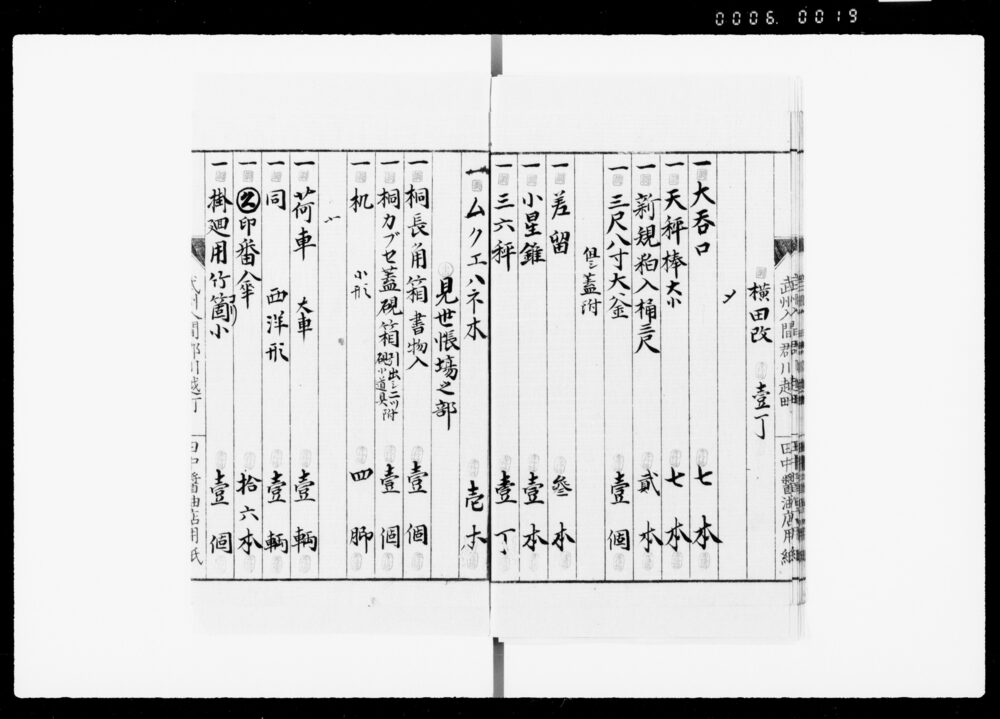 0006. 0019
武州入間郡川越町 田中醤油店用紙
横田改 壹丁
〆
一 大呑口 七本
一 天秤棒 大小 七本
一 新規粕入桶 三尺 貳本
一 三尺八寸大釜 壹個
但シ蓋附
一 差留 参本
一 小星錐 壹本
一 三六秤 壹丁
一 ムクエハネ木 壱本
見世帳場之部
一 桐長角箱 書物入 壹個
一 桐カブセ蓋硯箱 引出シ二ツ附 硯小道具附 壹個
一 机 小形 四脚
一 荷車 大車 壹輌
一 同 西洋形 壹輌
一 久印番傘 拾六本
一 掛廻用竹箇 小 壹個
武州入間郡川越町 田中醤油店用紙